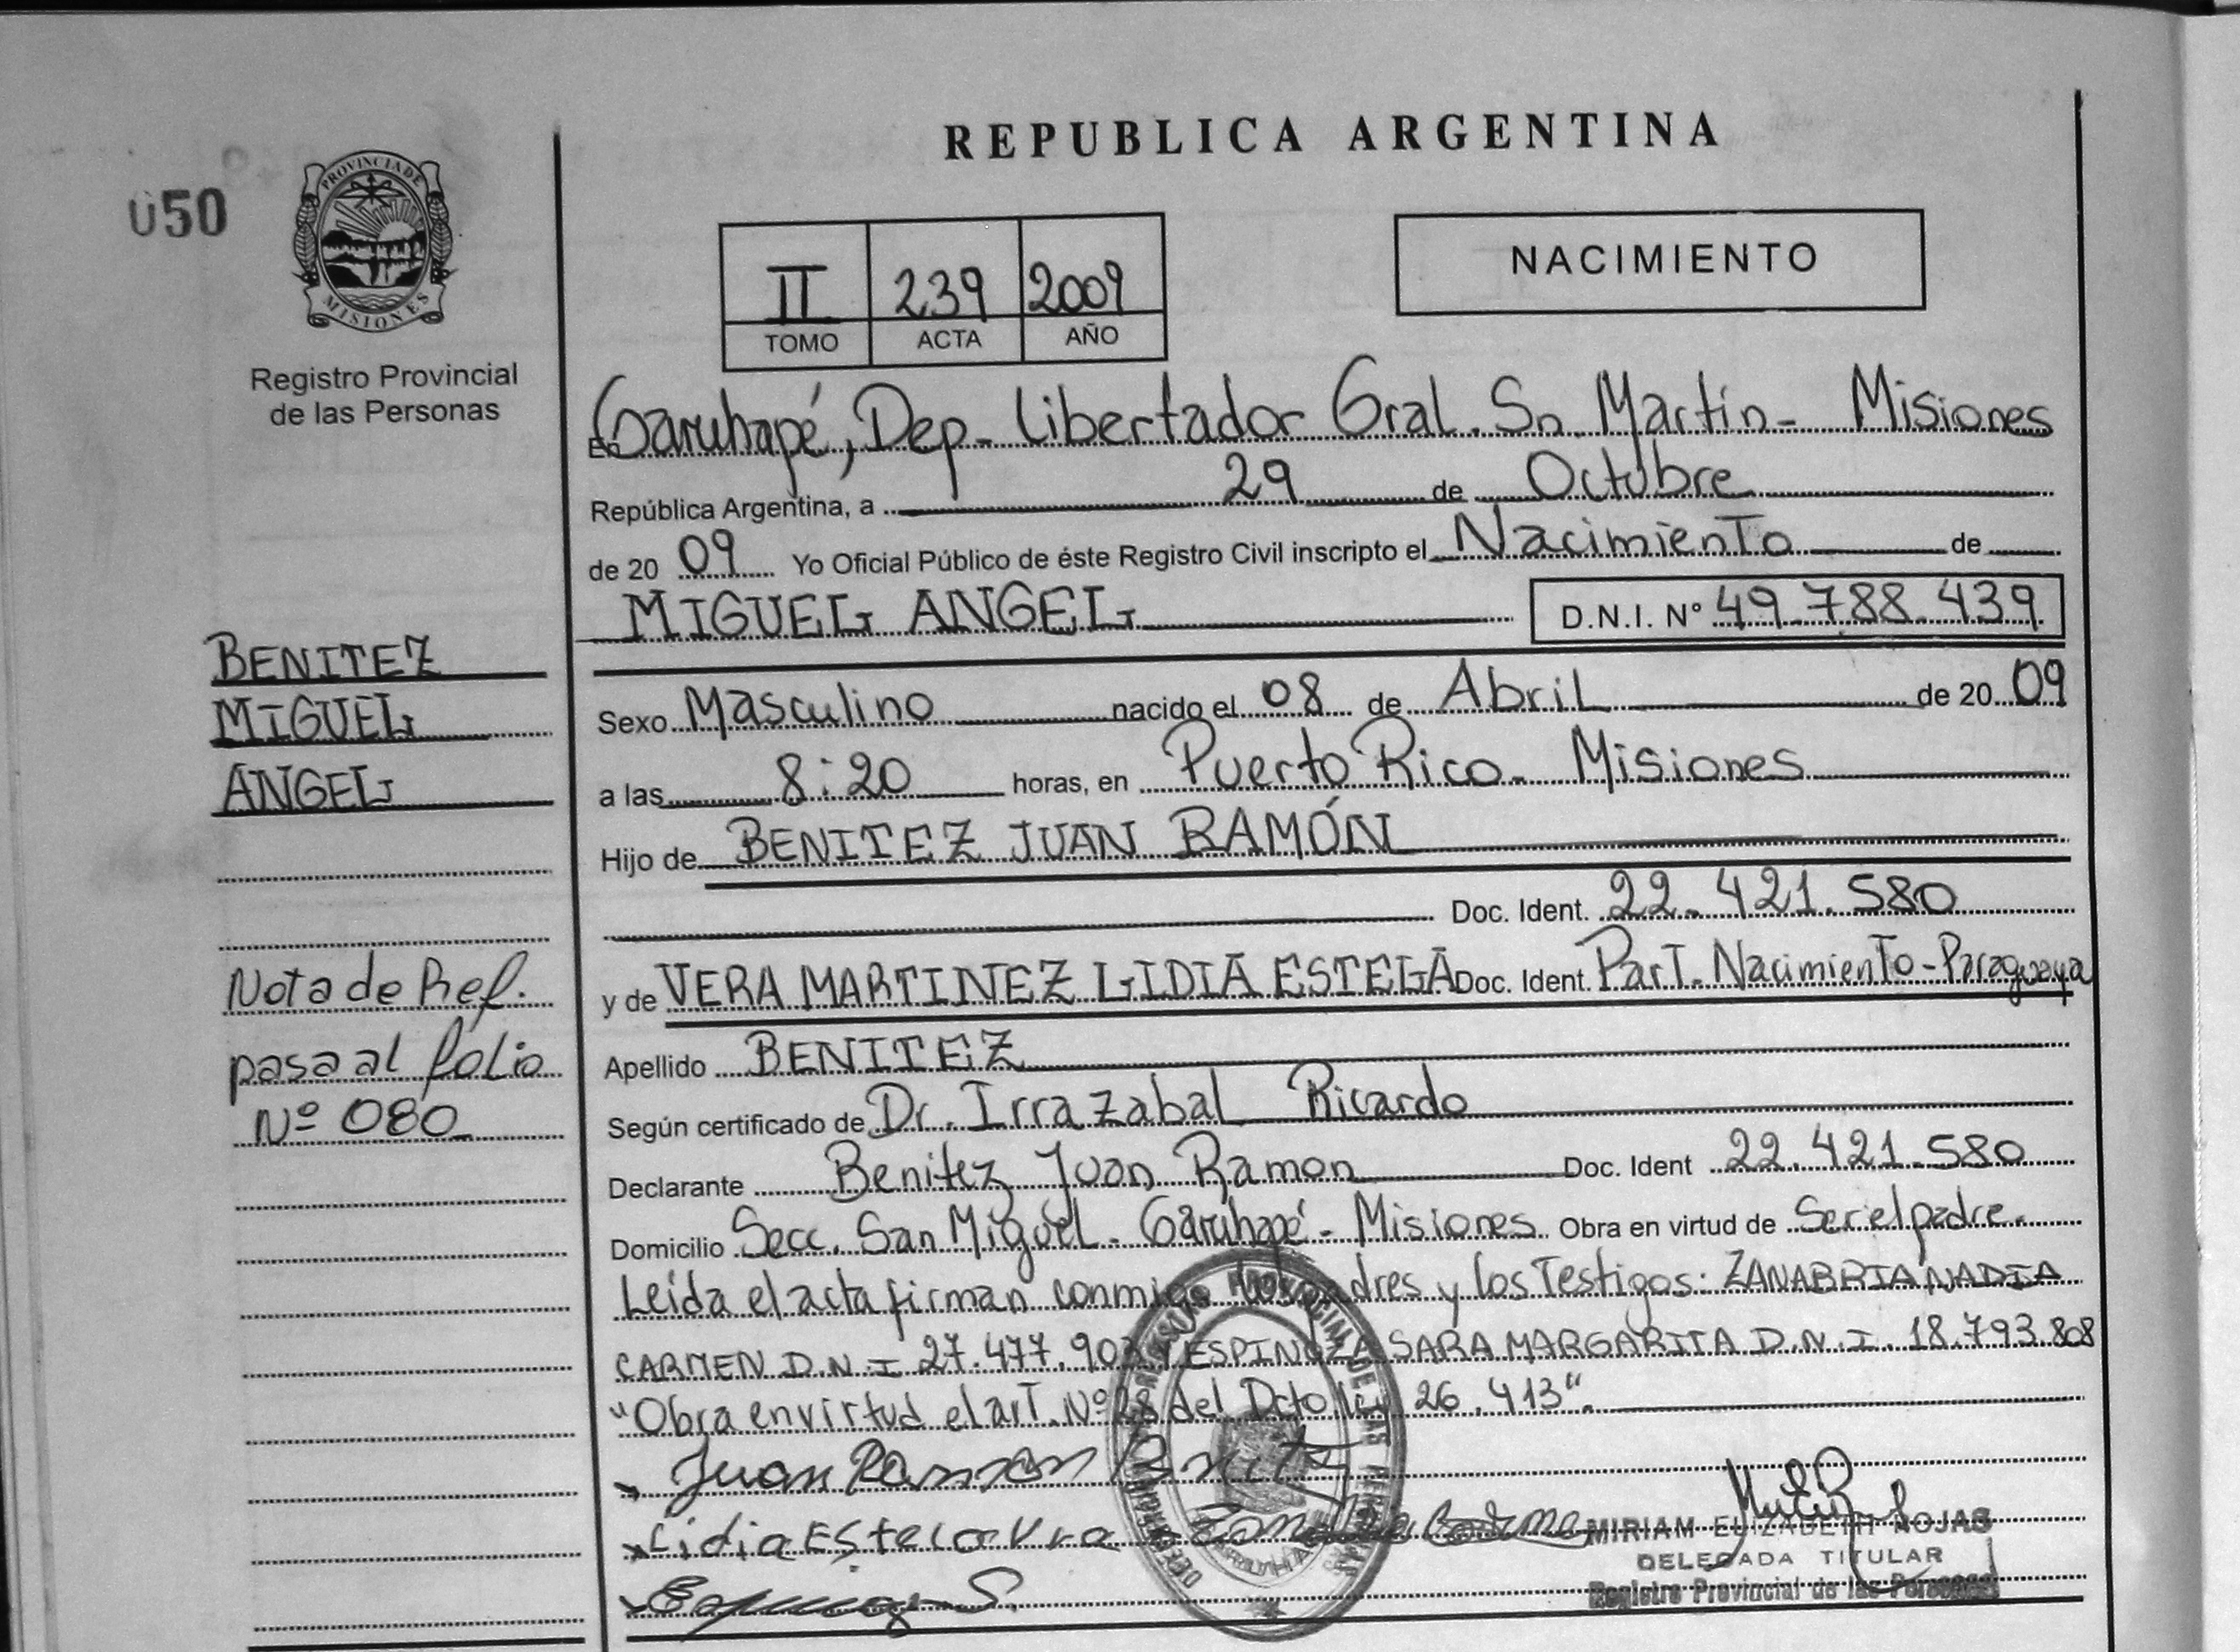 REPUBLICA ARGENTINA
050
PROVINCIA DE
MISIONES
Registro Provincial
de las Personas
II 239 2009
TOMO ACTA AÑO
NACIMIENTO
En Garuhapé, Dep- Libertador Gral. Sn. Martín- Misiones
República Argentina, a 29 de Octubre
de 20 09 Yo Oficial Público de éste Registro Civil inscripto el Nacimiento de
MIGUEL ANGEL D.N.I. Nº 49.788.439
Sexo Masculino nacido el 08 de Abril de 20 09
a las 8:20 horas, en Puerto Rico- Misiones
Hijo de BENITEZ JUAN RAMÓN
Doc. Ident. 22.421.580
y de VERA MARTINEZ LIDIA ESTELA Doc. Ident. Part. Nacimiento-Paraguaya
Apellido BENITEZ
Según certificado de Dr. Irrazabal Ricardo
Declarante Benitez Juan Ramon Doc. Ident 22.421.580
Domicilio Secc. San Miguel- Garuhapé- Misiones Obra en virtud de Ser el padre.
Leída el acta firman conmigo los padres y los Testigos: ZANABRIA NADIA
CARMEN D.N.I 27.477.903 Y ESPINOZA SARA MARGARITA D.N.I. 18.793.808
"Obra en virtud el art. Nº 28 del Dcto ley 26.413".
Juan Ramon Benitez
Lidia Estela Vra
Espinoza S.
MIRIAM ELIZABETH ROJAS
DELEGADA TITULAR
Registro Provincial de las Personas
BENITEZ
MIGUEL
ANGEL
Nota de Ref.
pasa al folio
Nº 080